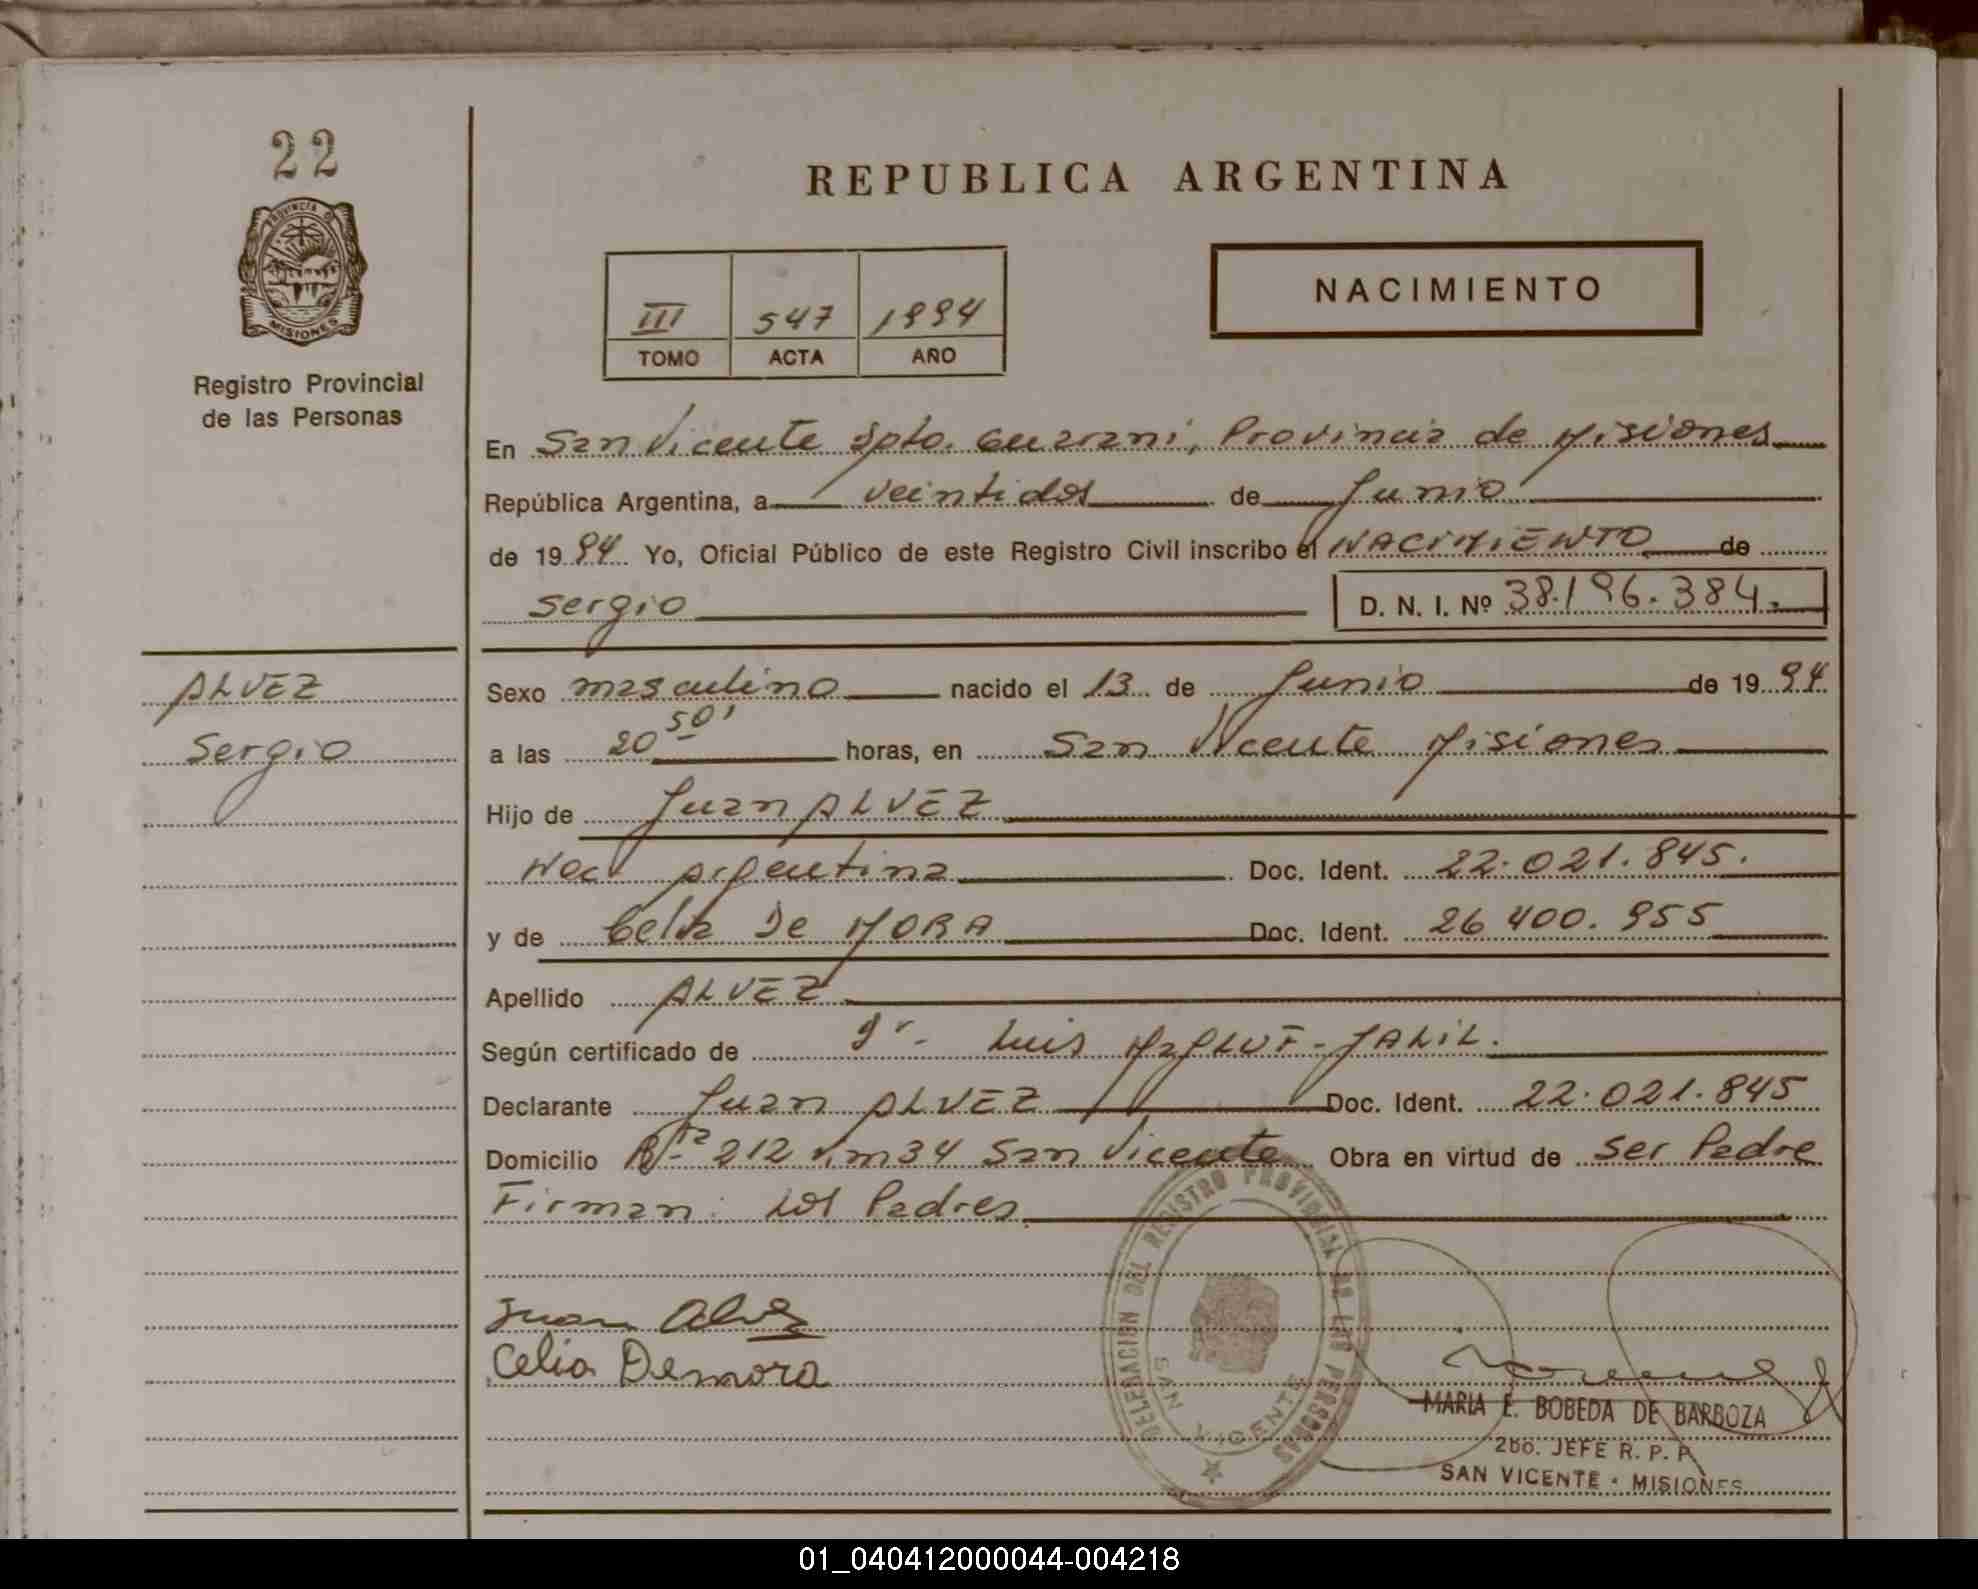 22
PROVINCIA DE
MISIONES
Registro Provincial
de las Personas
ALVEZ
Sergio
REPUBLICA ARGENTINA
III 547 1994
TOMO ACTA AÑO
NACIMIENTO
En San Vicente Dpto. Guarani, Provincia de Misiones
República Argentina, a veintidos de Junio
de 1994 Yo, Oficial Público de este Registro Civil inscribo el NACIMIENTO de
Sergio D. N. I. Nº 38.196.384.
Sexo masculino nacido el 13 de Junio de 1994
a las 20 50' horas, en San Vicente Misiones
Hijo de Juan ALVEZ
Nac Argentina Doc. Ident. 22.021.845.
y de Celia De MORA Doc. Ident. 26 400.955
Apellido ALVEZ
Según certificado de Dr. Luis JALIL.
Declarante Juan ALVEZ Doc. Ident. 22.021.845
Domicilio Rta 212 km 34 San Vicente Obra en virtud de ser Padre
Firman: los Padres
Juan Alvez
Celia Demora
DELEGACION DEL REGISTRO PROVINCIAL DE LAS PERSONAS
SAN VICENTE
MARIA E. BOBEDA DE BARBOZA
2do. JEFE R. P. P.
SAN VICENTE - MISIONES
01_040412000044-004218